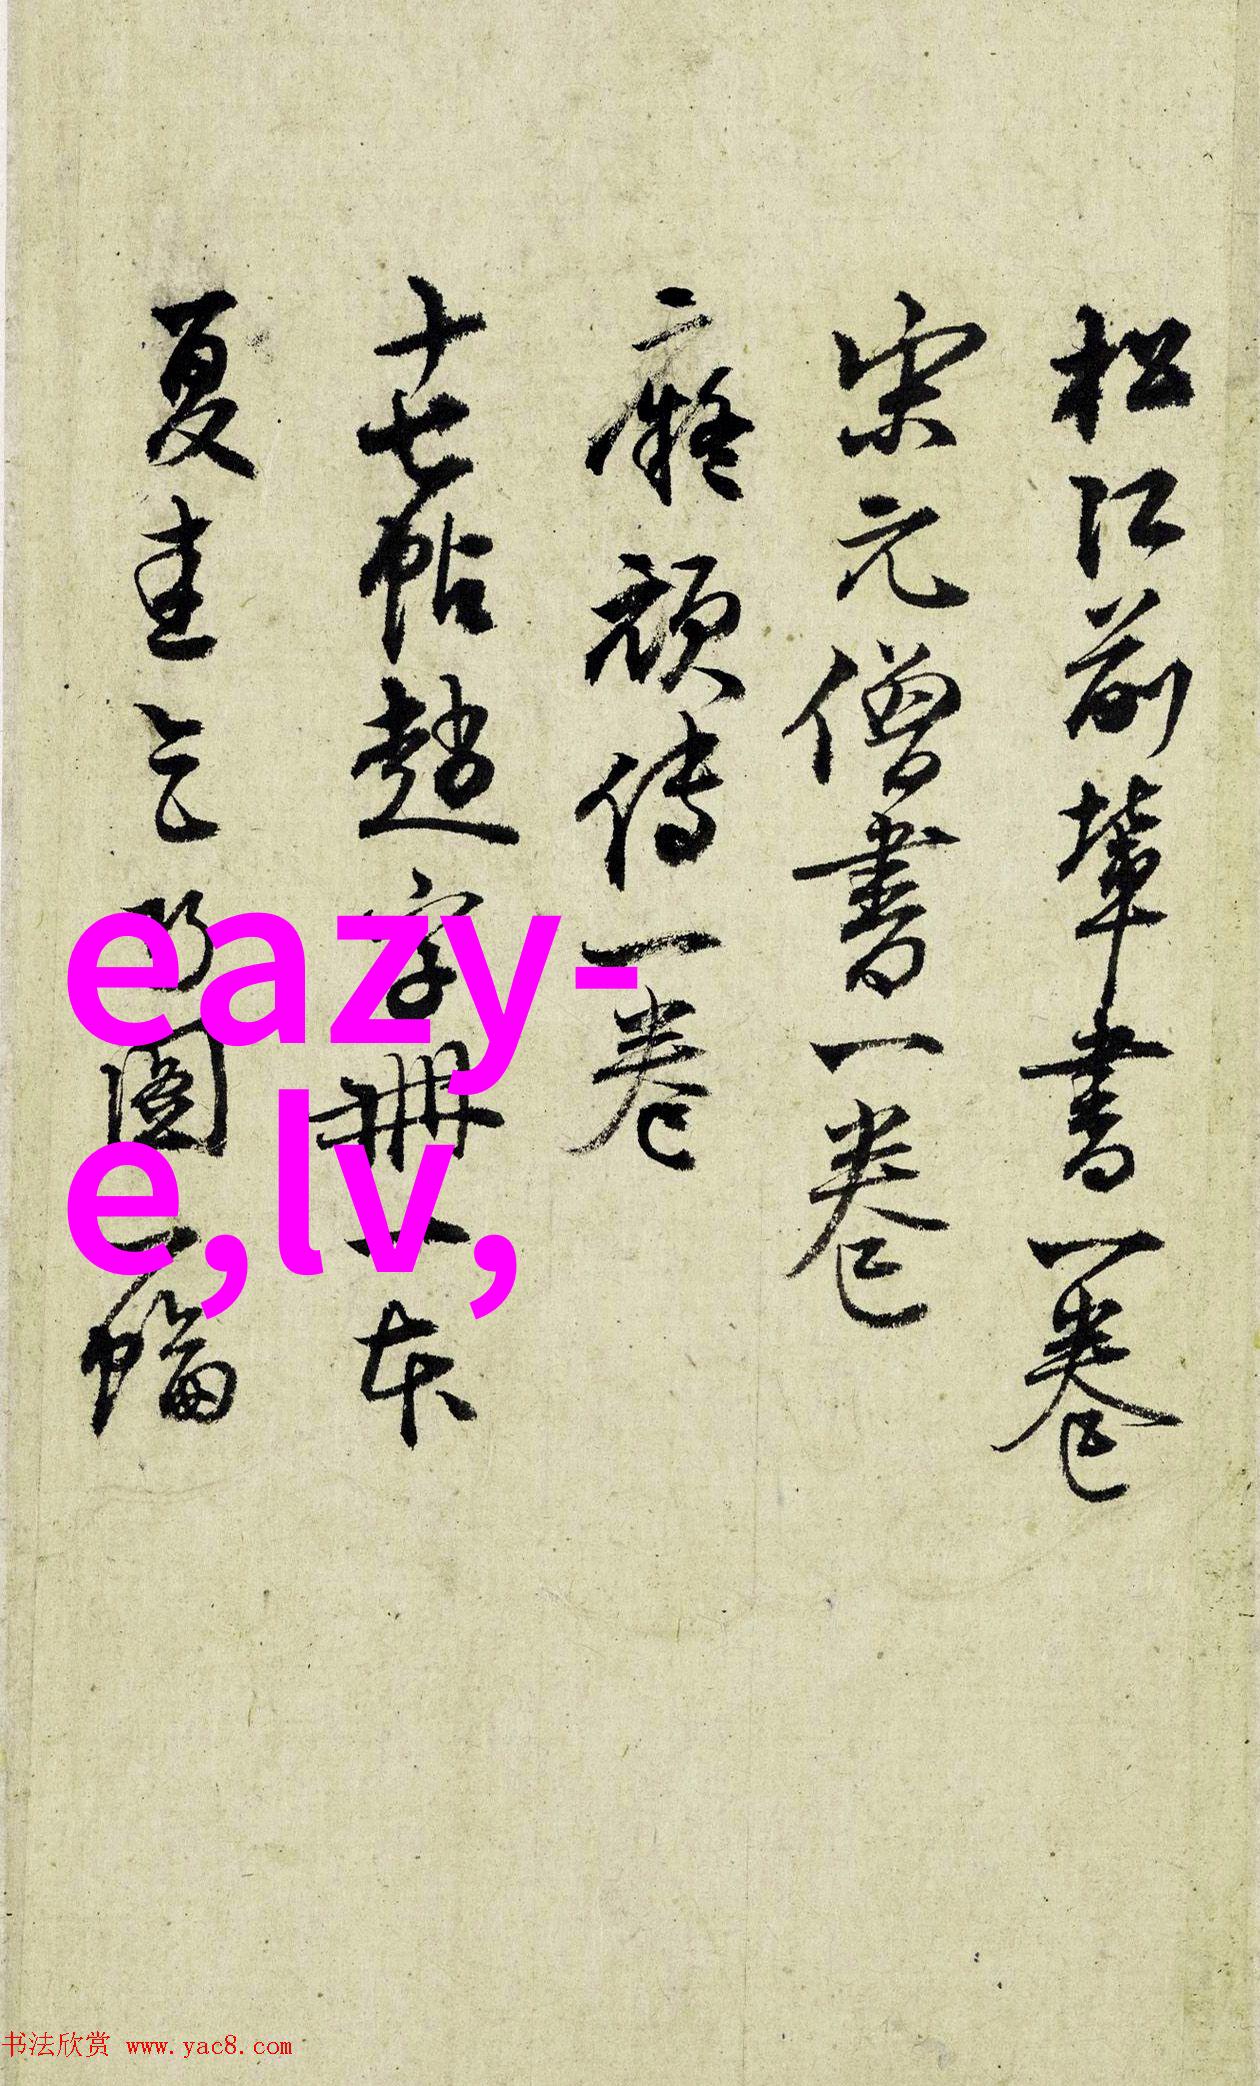 松江前輩書一卷
宋元僧書一卷
癡頑傳一卷
十七帖趙字冊一本
夏圭乞巧圖一幅
eazy-
e,lv,
书法欣赏 www.yac8.com